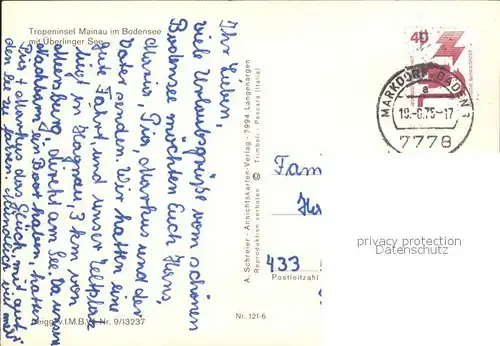 Tropeninsel Mainau im Bodensee
mit Überlinger See
Ihr Lieben,
viele Urlaubsgrüße vom schönen
Bodensee möchten Euch Hans,
Maria, Pia, Markus und der
Vater senden. Wir hatten eine
gute Fahrt, und unser Zeltplatz
liegt in Hagnau, 3 km von
Meersburg, direkt am See. Da unsere
Nachbarn ein Boot haben, hatten
Pia + Markus das Glück, mit auf
den See zu fahren. Mündlich viel mehr
Freigg. v. I.M.B.W. Nr. 9/13237
Nr. 121-6
A. Schreier - Ansichtskarten-Verlag - 7994 Langenargen
Reproduktion verboten © Trimboli - Pescara (Italia)
40
MARKDORF, BADEN 1
a
19.-8.75-17
7778
Fam
433
Postleitzahl
privacy protection
Datenschutz